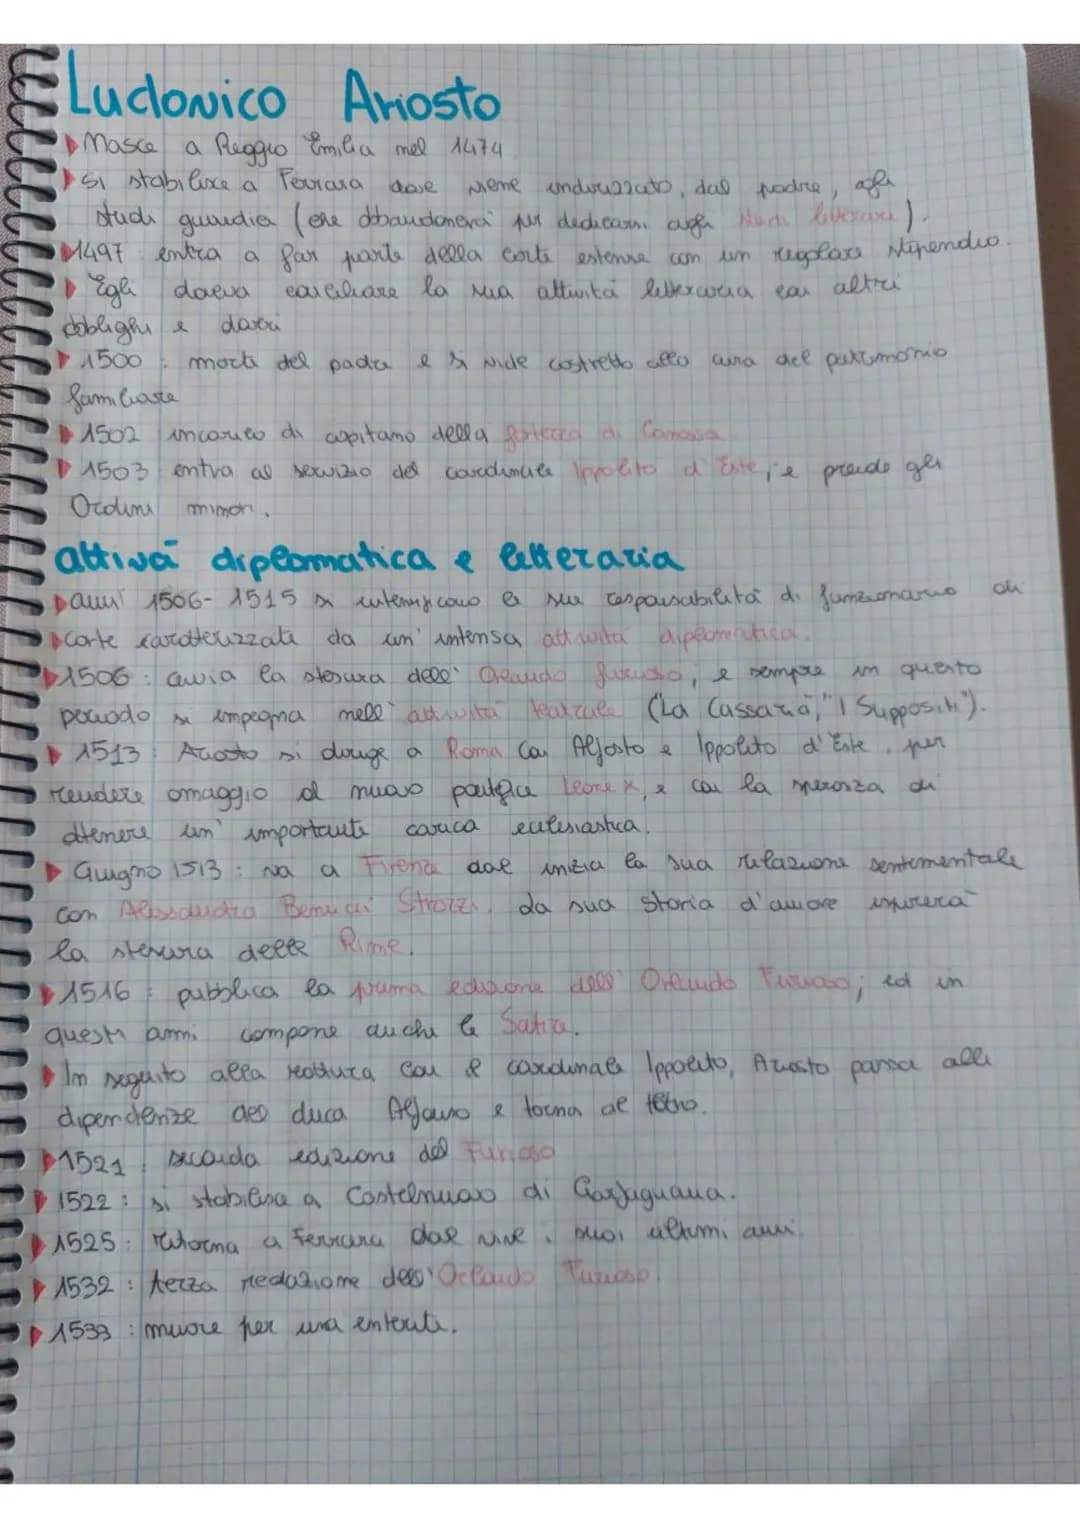 Ludovico Ariosto
Nasce a Reggio Emilia nel 1474
si stabilisce a Ferrara dove viene indirizzato, dal padre, agli
studi giuridici (che abbandonerà per dedicarsi agli studi letterari).
1497 entra a far parte della corte estense con un regolare stipendio.
Egli doveva conciliare la sua attività letteraria con altri
obblighi e doveri
1500 : morte del padre e si vide costretto alla cura del patrimonio
familiare
1502 incarico di capitano della fortezza di Canossa
1503 entra al servizio del cardinale Ippolito d'Este, e prende gli
Ordini minori.
attivà diplomatica e letteraria
anni 1506- 1515 si intensificano le sue responsabilità di funzionario di
corte caratterizzate da un' intensa attività diplomatica.
1506 : avvia la stesura dell' Orlando furioso, e sempre in questo
periodo si impegna nell' attività teatrale ("La Cassaria", "I Suppositi").
1513 : Ariosto si dirige a Roma con Alfosto e Ippolito d'Este, per
rendere omaggio al nuovo pontefice Leone X, e con la speranza di
ottenere un' importante carica ecclesiastica.
Giugno 1513 : va a Firenze dove inizia la sua relazione sentimentale
con Alessandra Benucci Strozzi, da sua storia d'amore ispirerà
la stesura delle Rime.
1516 : pubblica la prima edizione dell' Orlando Furioso; ed in
questi anni compone anche le Satire.
In seguito alla rottura con il cardinale Ippolito, Ariosto passa alle
dipendenze del duca Alfonso e torna al
1521 : seconda edizione del Furioso
1522 : si stabilisce a Castelnuovo di Garfagnana.
1525 : ritorna a Ferrara dove vive i suoi ultimi anni.
1532 : terza redazione dell'Orlando Furioso.
1533 : muore per una enterite.